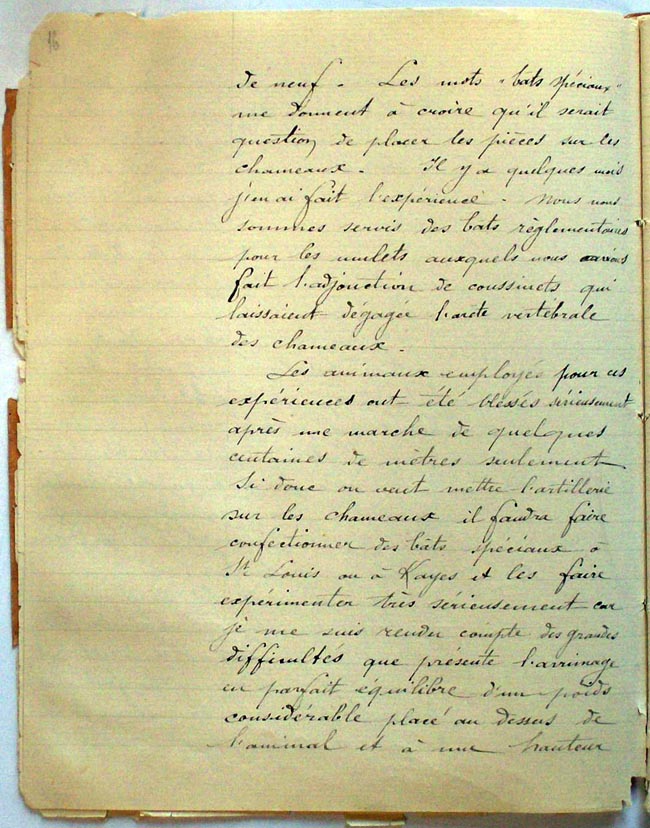 16
de neuf - Les mots "bats spéciaux"
me donnent à croire qu'il serait
question de placer les pièces sur les
chameaux - Il y a quelques mois
j'en ai fait l'expérience - Nous nous
sommes servis des bats règlementaires
pour les mulets auxquels nous avions
fait l'adjonction de coussinets qui
laissaient dégagée l'arête vertébrale
des chameaux -
Les animaux employés pour ces
expériences ont été blessés sérieusement
après une marche de quelques
centaines de mètres seulement
Si donc on veut mettre l'artillerie
sur les chameaux il faudra faire
confectionner des bâts spéciaux à
St Louis ou à Kayes et les faire
expérimenter très sérieusement car
je me suis rendu compte des grandes
difficultés que présente l'arrimage
en parfait équilibre d'un poids
considérable placé au dessus de
l'animal et à une hauteur